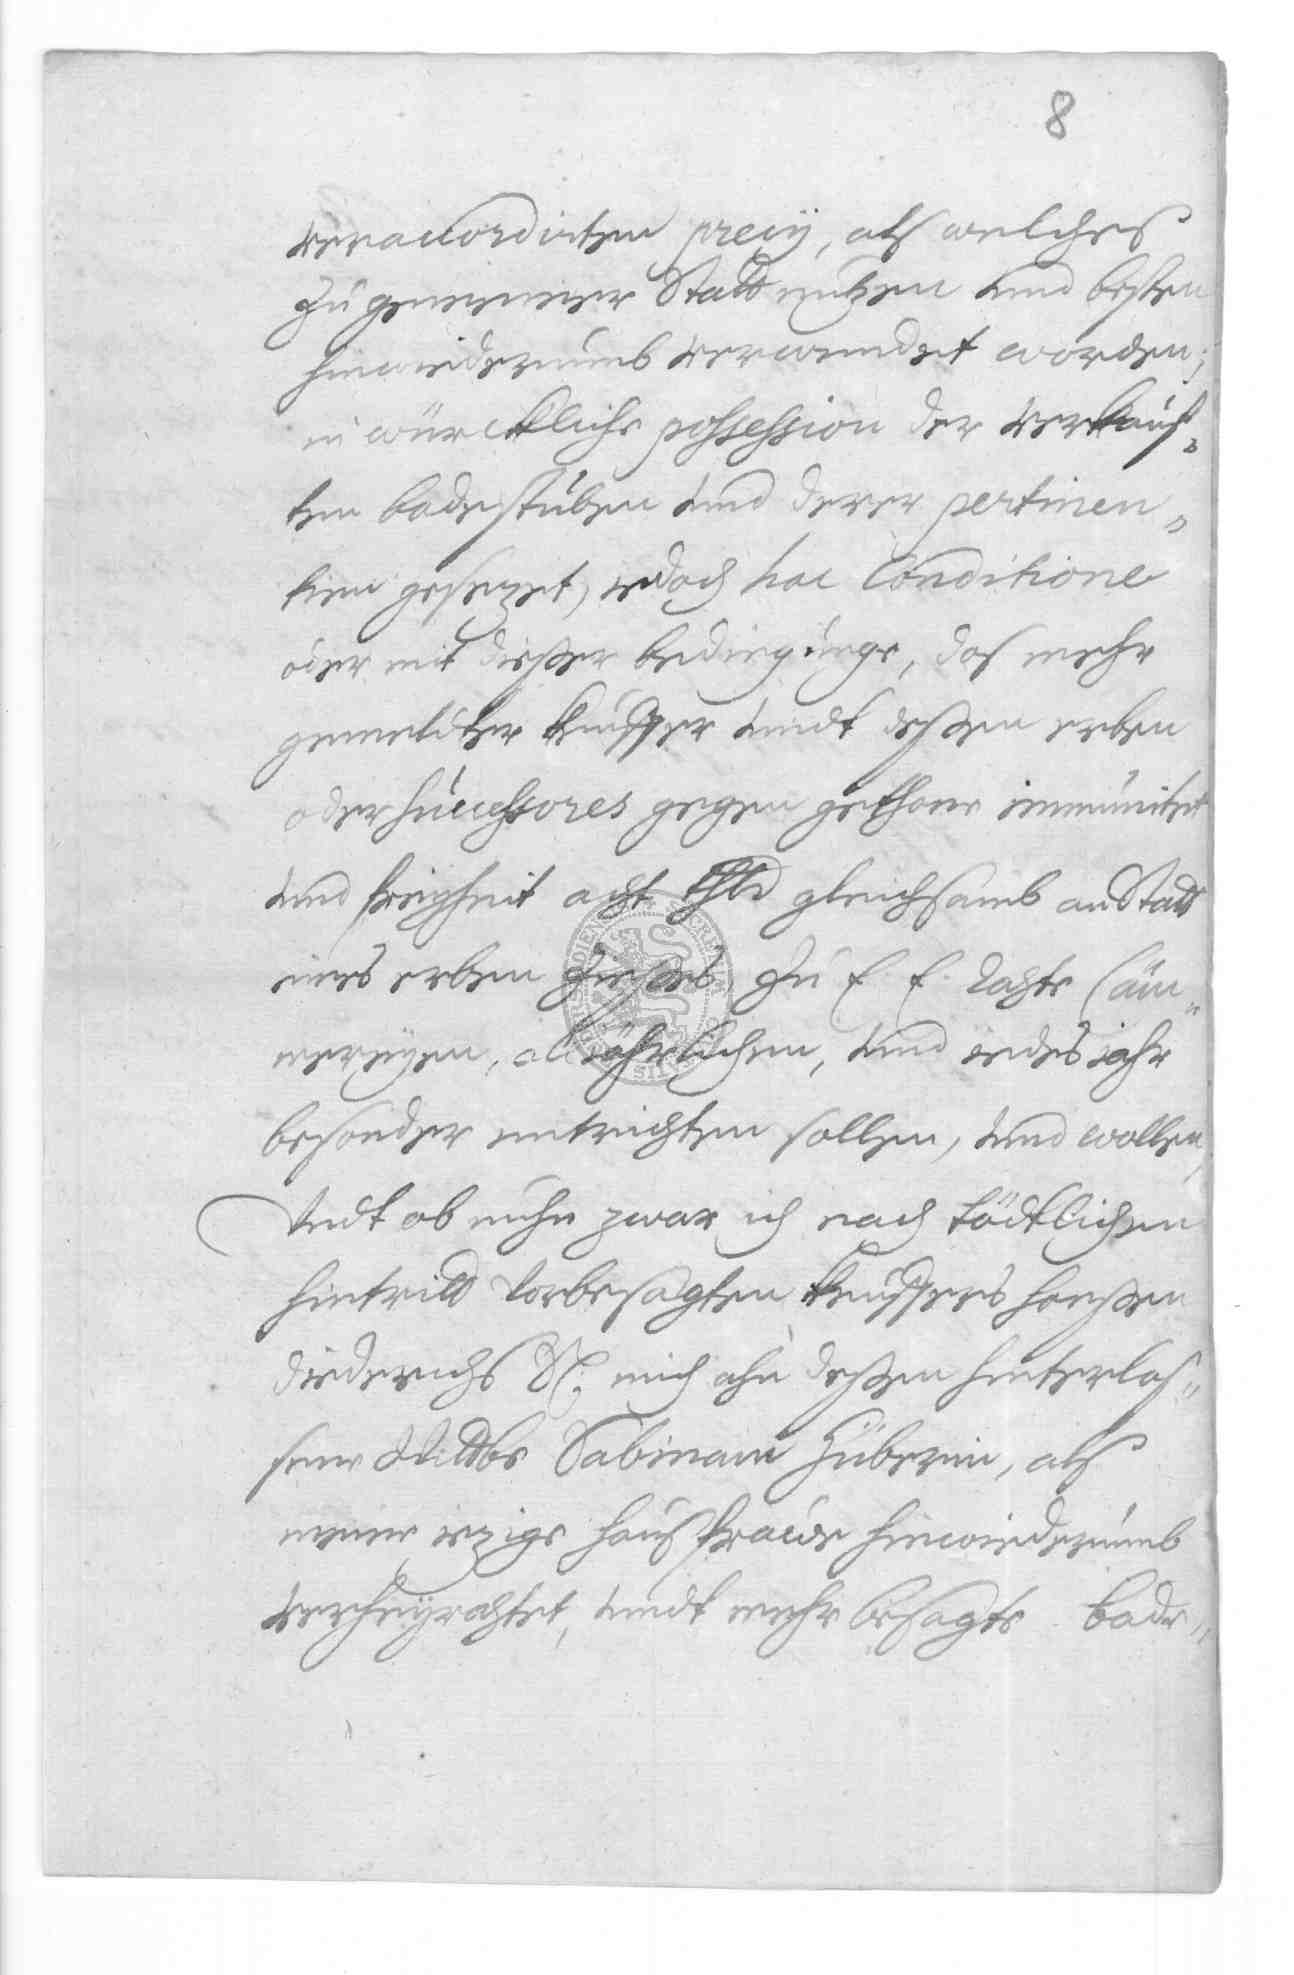 8
veraccordirten precij, alß welches
zu gemeiner Stadt nutzen und besten
hinwiederumb verwendet worden;
in würckliche possession der verkauf„
ten badestuben und derer pertinen„
tien gesezet, iedoch hac Conditione
oder mit dießer bedingunge, das mehr
gemeldter Käuffer undt deßen erben
oder successores gegen gethane immunitet
und freyheit acht thlr gleichsamb an Stadt
eines erben Zießes, zu E. E. Rahts Cäm„
mereyen, alljährlichen, und iedes iahr
besonder entrichten sollen, und wollen,
Undt ob nuhn zwar ich nach tödtlichen
hintridd vorbesagten Keuffers Hanßen
Diederichs Sl. mich ahn deßen hinterlaß„
sene Wittbe Sabinam Hüberin, alß
meine iezige haußfrawe hinwiederumb
verheyrahtet, undt mehr besagte bade„
SIGILLUM